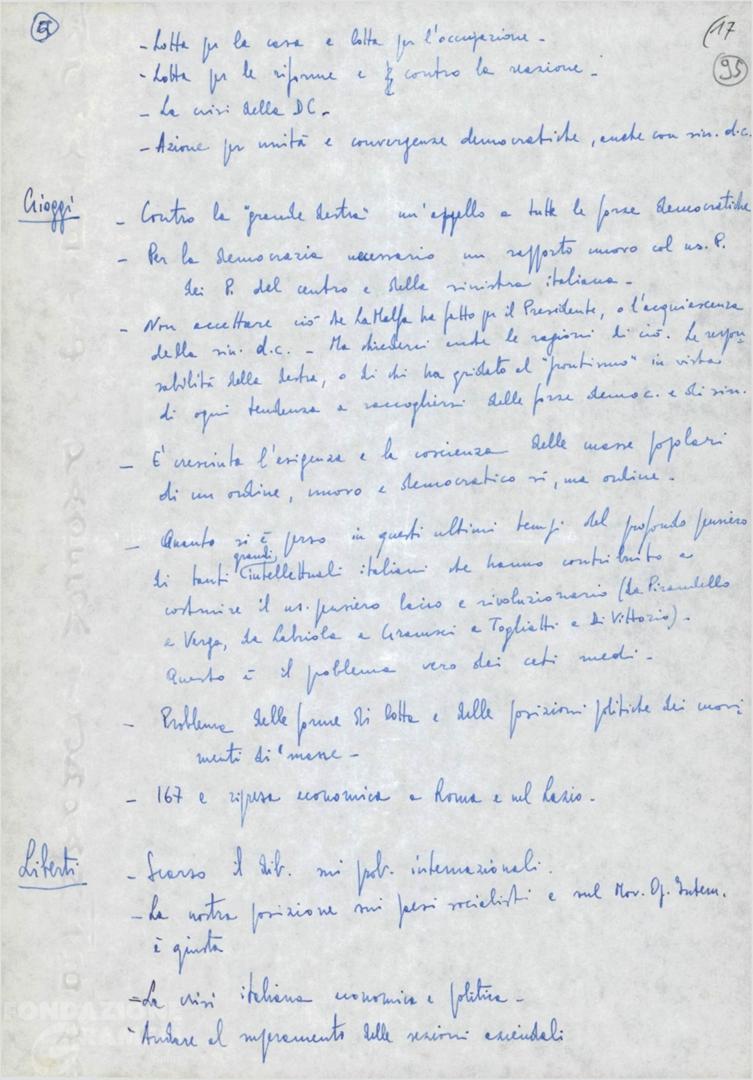 5
(17
95
- Lotta per la casa e lotta per l'occupazione -
- Lotta per le riforme e contro la reazione -
- La crisi della DC -
- Azione per unità e convergenze democratiche, anche con sin. d.c.
Gioggi
- Contro la "grande destra" un'appello a tutte le forze democratiche
- Per la democrazia necessario un rapporto nuovo col ns. P.
dei P. del centro e della sinistra italiana -
- Non accettare ciò che La Malfa ha fatto per il Presidente, o l'acquiescenza
della sin. d.c. - Ma chiederci anche le ragioni di ciò. Le respon-
sabilità della destra, o di chi ha gridato al "frontismo" in vista
di ogni tendenza a raccogliersi delle forze democ. e di sin.
- E' cresciuta l'esigenza e la coscienza delle masse popolari
di un ordine, nuovo e democratico sì, ma ordine -
- Quanto si è perso in questi ultimi tempi del profondo pensiero
di tanti grandi intellettuali italiani che hanno contribuito a
costruire il ns. pensiero laico e rivoluzionario (da Pirandello
a Verga, da Labriola a Gramsci a Togliatti e Di Vittorio) -
Questo è il problema vero dei ceti medi -
- Problema delle forme di lotta e delle posizioni politiche dei movi-
menti di masse -
- 167 e ripresa economica a Roma e nel Lazio -
Liberti
- Scarso il dib. sui prob. internazionali.
- La nostra posizione sui paesi socialisti e sul Mov. Op. Intern.
è giusta
- La crisi italiana economica e politica -
- Andare al superamento delle sezioni aziendali
FONDAZIONE